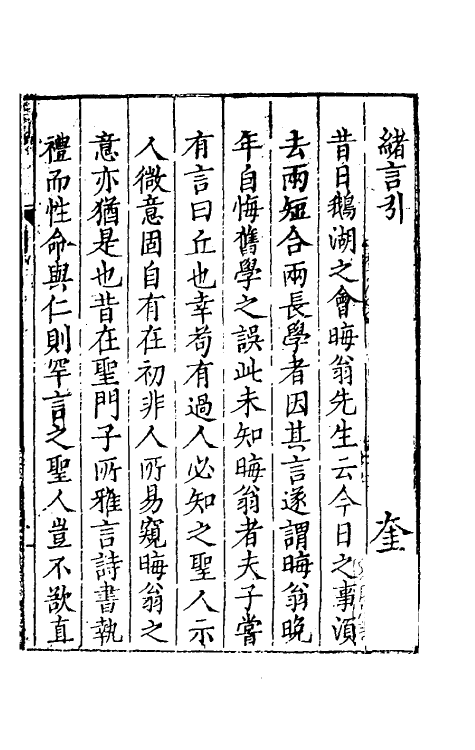 緒言引　奎
昔日鵝湖之會晦翁先生云今日之事須
去兩短合兩長學者因其言遂謂晦翁晚
年自悔舊學之誤此未知晦翁者夫子嘗
有言曰丘也幸苟有過人必知之聖人示
人微意固自有在初非人所易窺晦翁之
意亦猶是也昔在聖門子所雅言詩書執
禮而性命與仁則罕言之聖人豈不欲直